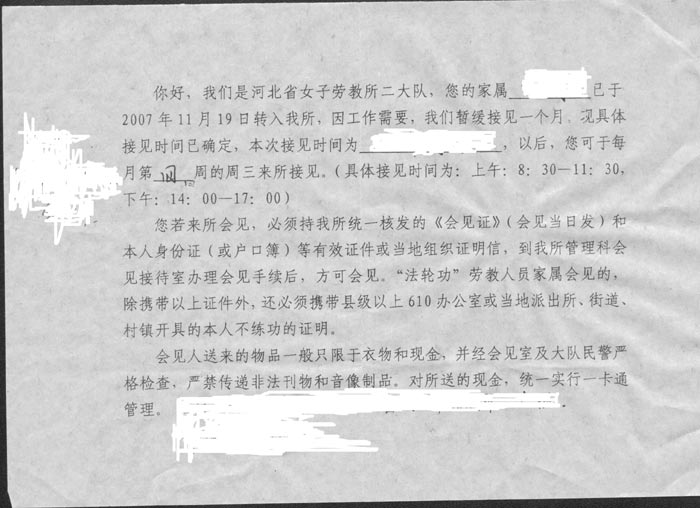 你好，我们是河北省女子劳教所二大队，您的家属 已于
2007年11月19日转入我所，因工作需要，我们暂缓接见一个月。现具体
接见时间已确定，本次接见时间为 ，以后，您可于每
月第 四 周的周三来所接见。（具体接见时间为：上午：8：30—11：30，
下午：14：00—17：00）
您若来所会见，必须持我所统一核发的《会见证》（会见当日发）和
本人身份证（或户口簿）等有效证件或当地组织证明信，到我所管理科会
见接待室办理会见手续后，方可会见。“法轮功”劳教人员家属会见的，
除携带以上证件外，还必须携带县级以上610办公室或当地派出所、街道、
村镇开具的本人不练功的证明。
会见人送来的物品一般只限于衣物和现金，并经会见室及大队民警严
格检查，严禁传递非法刊物和音像制品。对所送的现金，统一实行一卡通
管理。